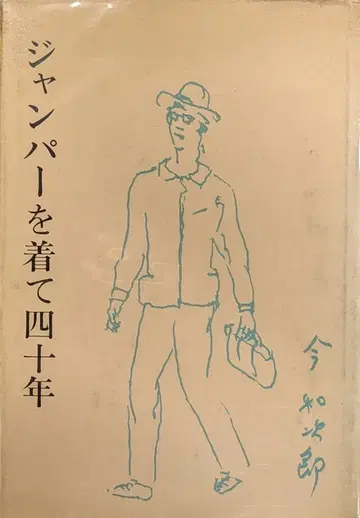 ジャンパーを着て四十年
今和次郎